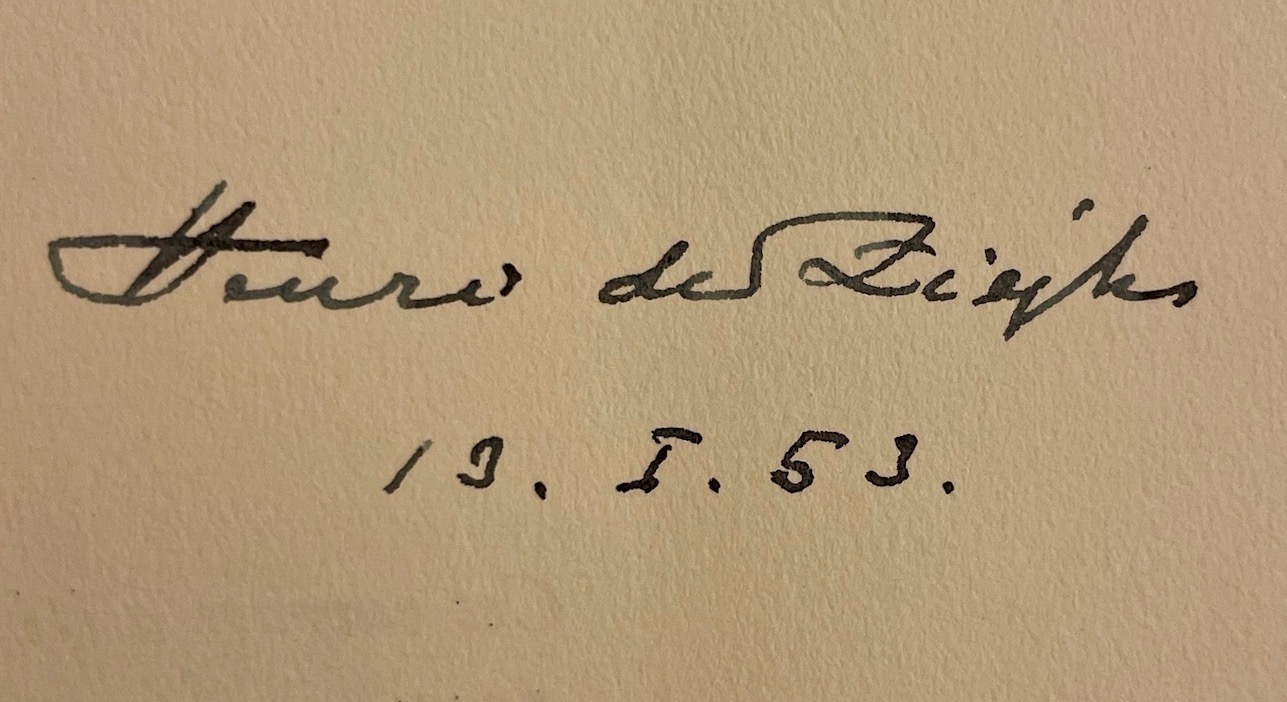 Henri de Ziégler
13. I. 53.